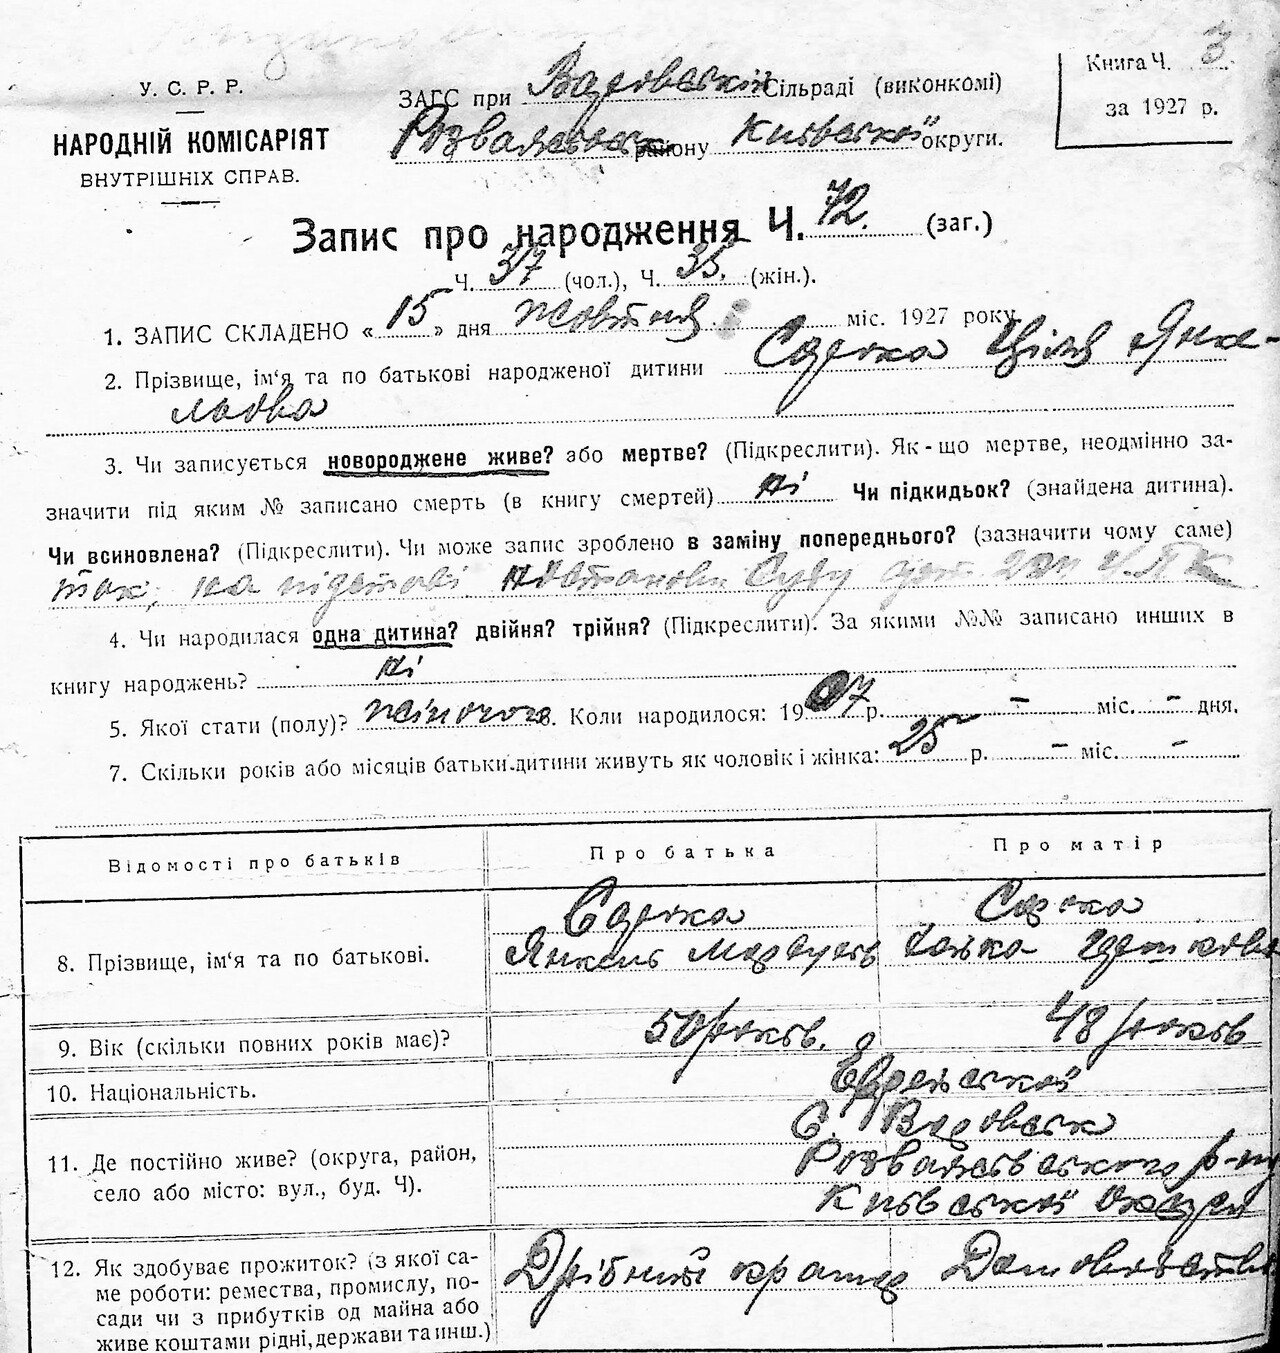 У. С. Р. Р.
НАРОДНІЙ КОМІСАРІЯТ
ВНУТРІШНІХ СПРАВ.
ЗАГС при Сільраді (виконкомі)
району Київської округи.
Книга Ч. 3
за 1927 р.
Запис про народження Ч. 72. (заг.)
Ч. 37 (чол.), Ч. 35. (жін.).
1. ЗАПИС СКЛАДЕНО « 15 » дня жовтня міс. 1927 року
2. Прізвище, ім‘я та по батькові народженої дитини Ціля Янке-
льова
3. Чи записується новороджене живе? або мертве? (Підкреслити). Як-що мертве, неодмінно за-
значити під яким № записано смерть (в книгу смертей) ні Чи підкидьок? (знайдена дитина).
Чи всиновлена? (Підкреслити). Чи може запис зроблено в заміну попереднього? (зазначити чому саме)
так, на підставі постанови Суду
4. Чи народилася одна дитина? двійня? трійня? (Підкреслити). За якими №№ записано инших в
книгу народжень? ні
5. Якої стати (полу)? жіночого. Коли народилося: 1907 р. – міс. – дня.
7. Скільки років або місяців батьки дитини живуть як чоловік і жінка: 25 р. – міс. –
Відомості про батьків
Про батька
Про матір
8. Прізвище, ім‘я та по батькові.
Янкель
9. Вік (скільки повних років має)?
50 років.
48 років
10. Національність.
Єврейської
11. Де постійно живе? (округа, район,
село або місто: вул., буд. Ч).
Розважівського р-ну
Київської округи
12. Як здобуває прожиток? (з якої са-
ме роботи: ремества, промислу, по-
сади чи з прибутків од майна або
живе коштами рідні, держави та инш.)
Дрібний крамар